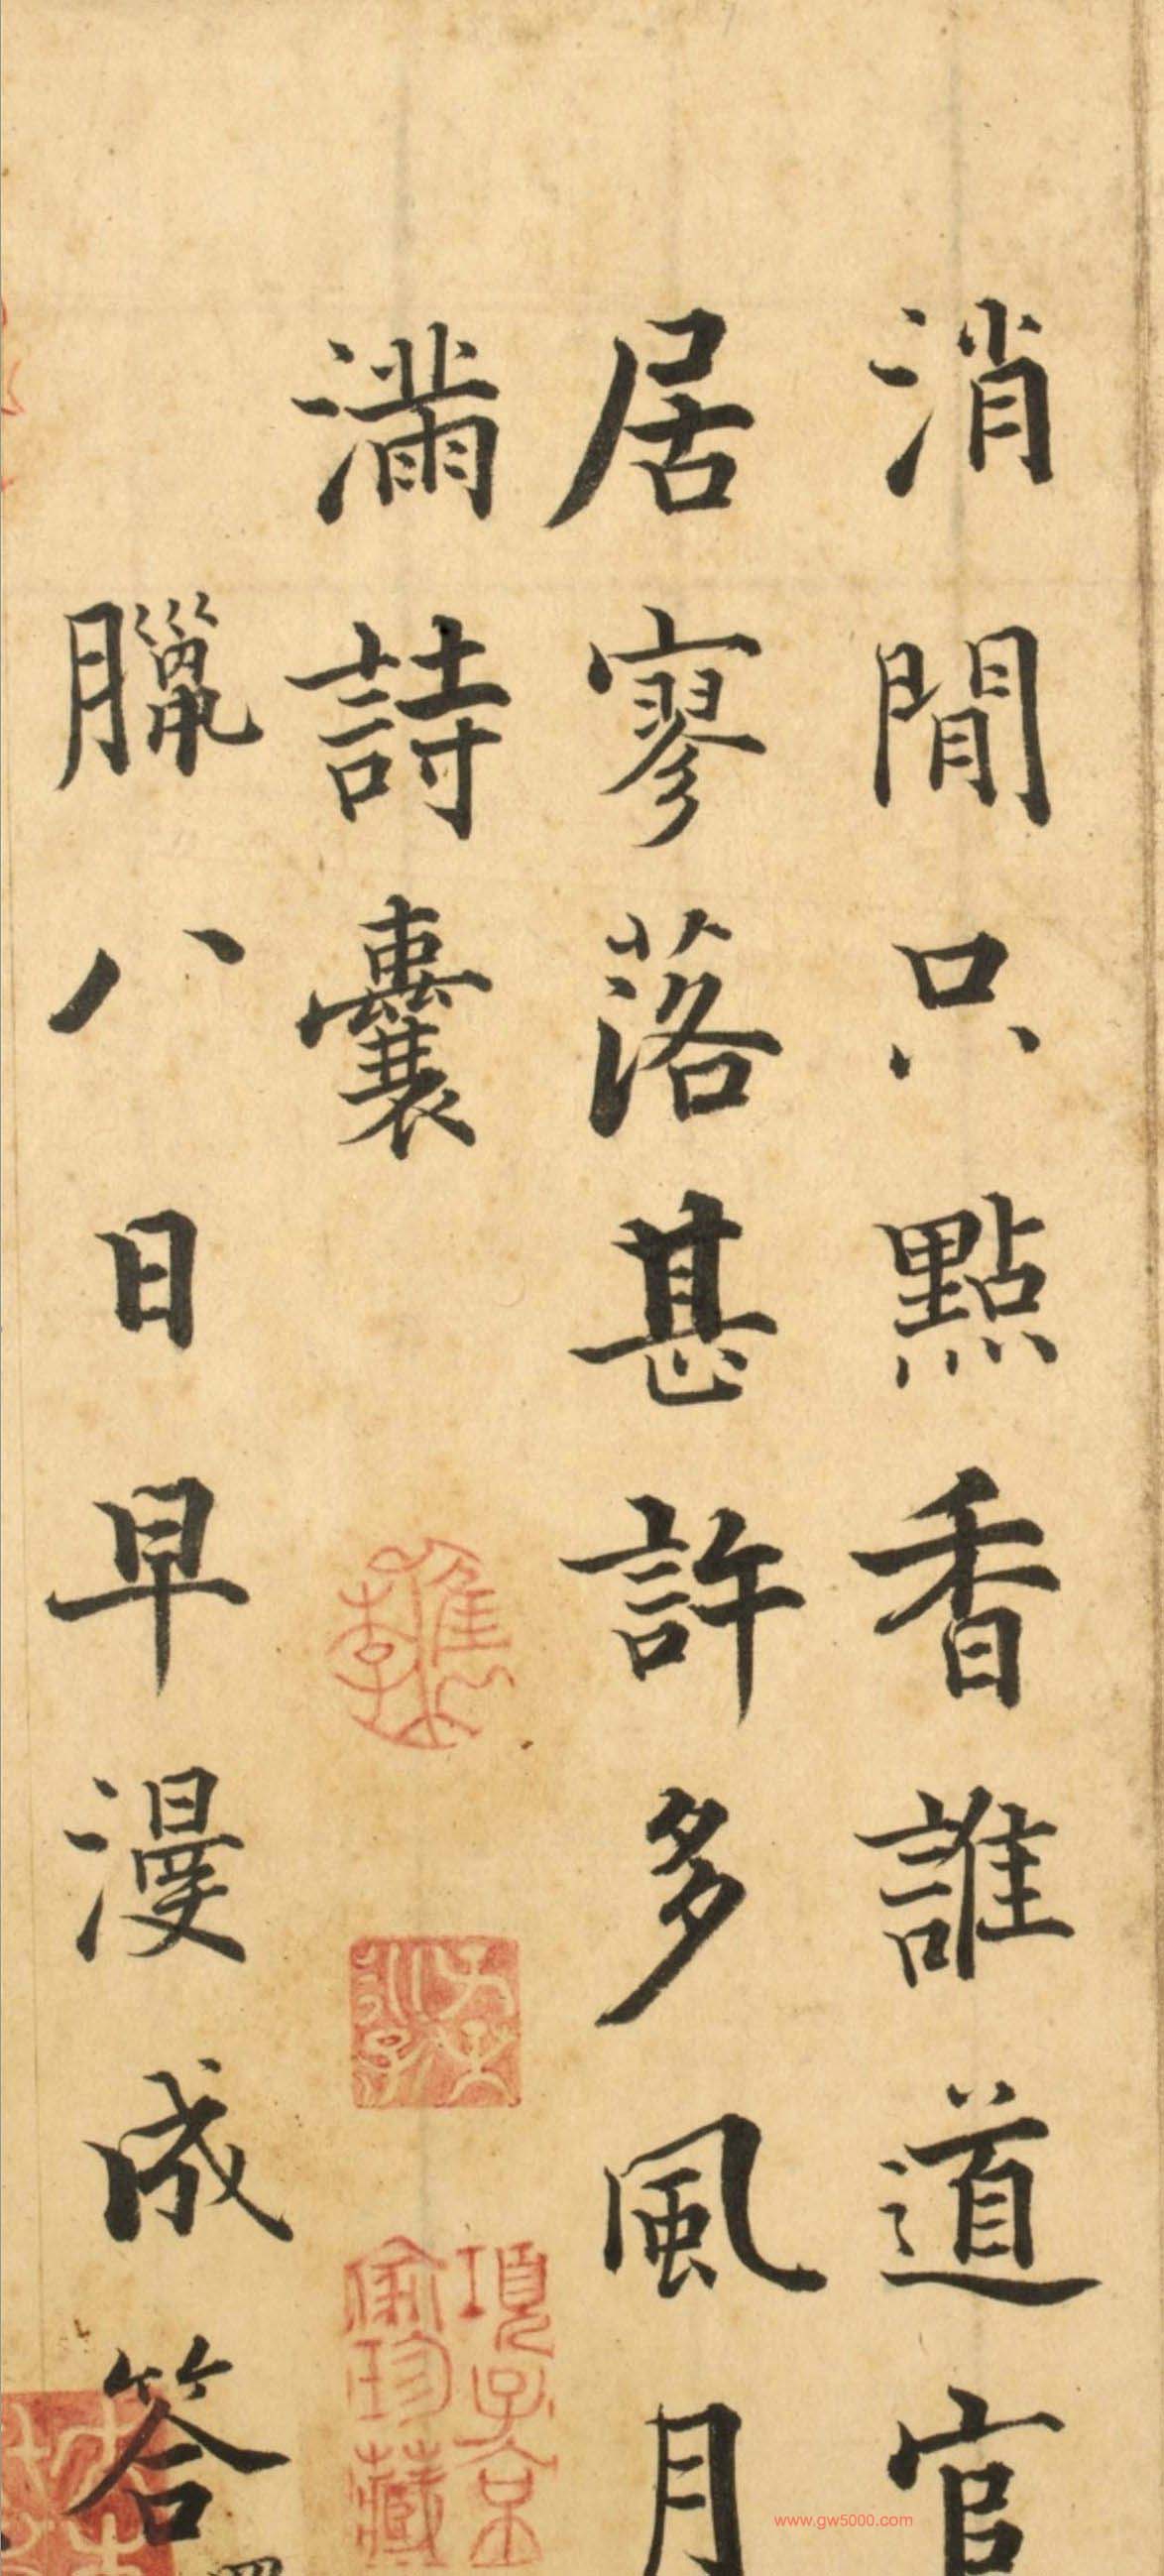 消閒只點香誰道官
居寥落甚許多風月
滿詩囊
臘八日早漫成答
項子京
家珍藏
www.gw5000.com